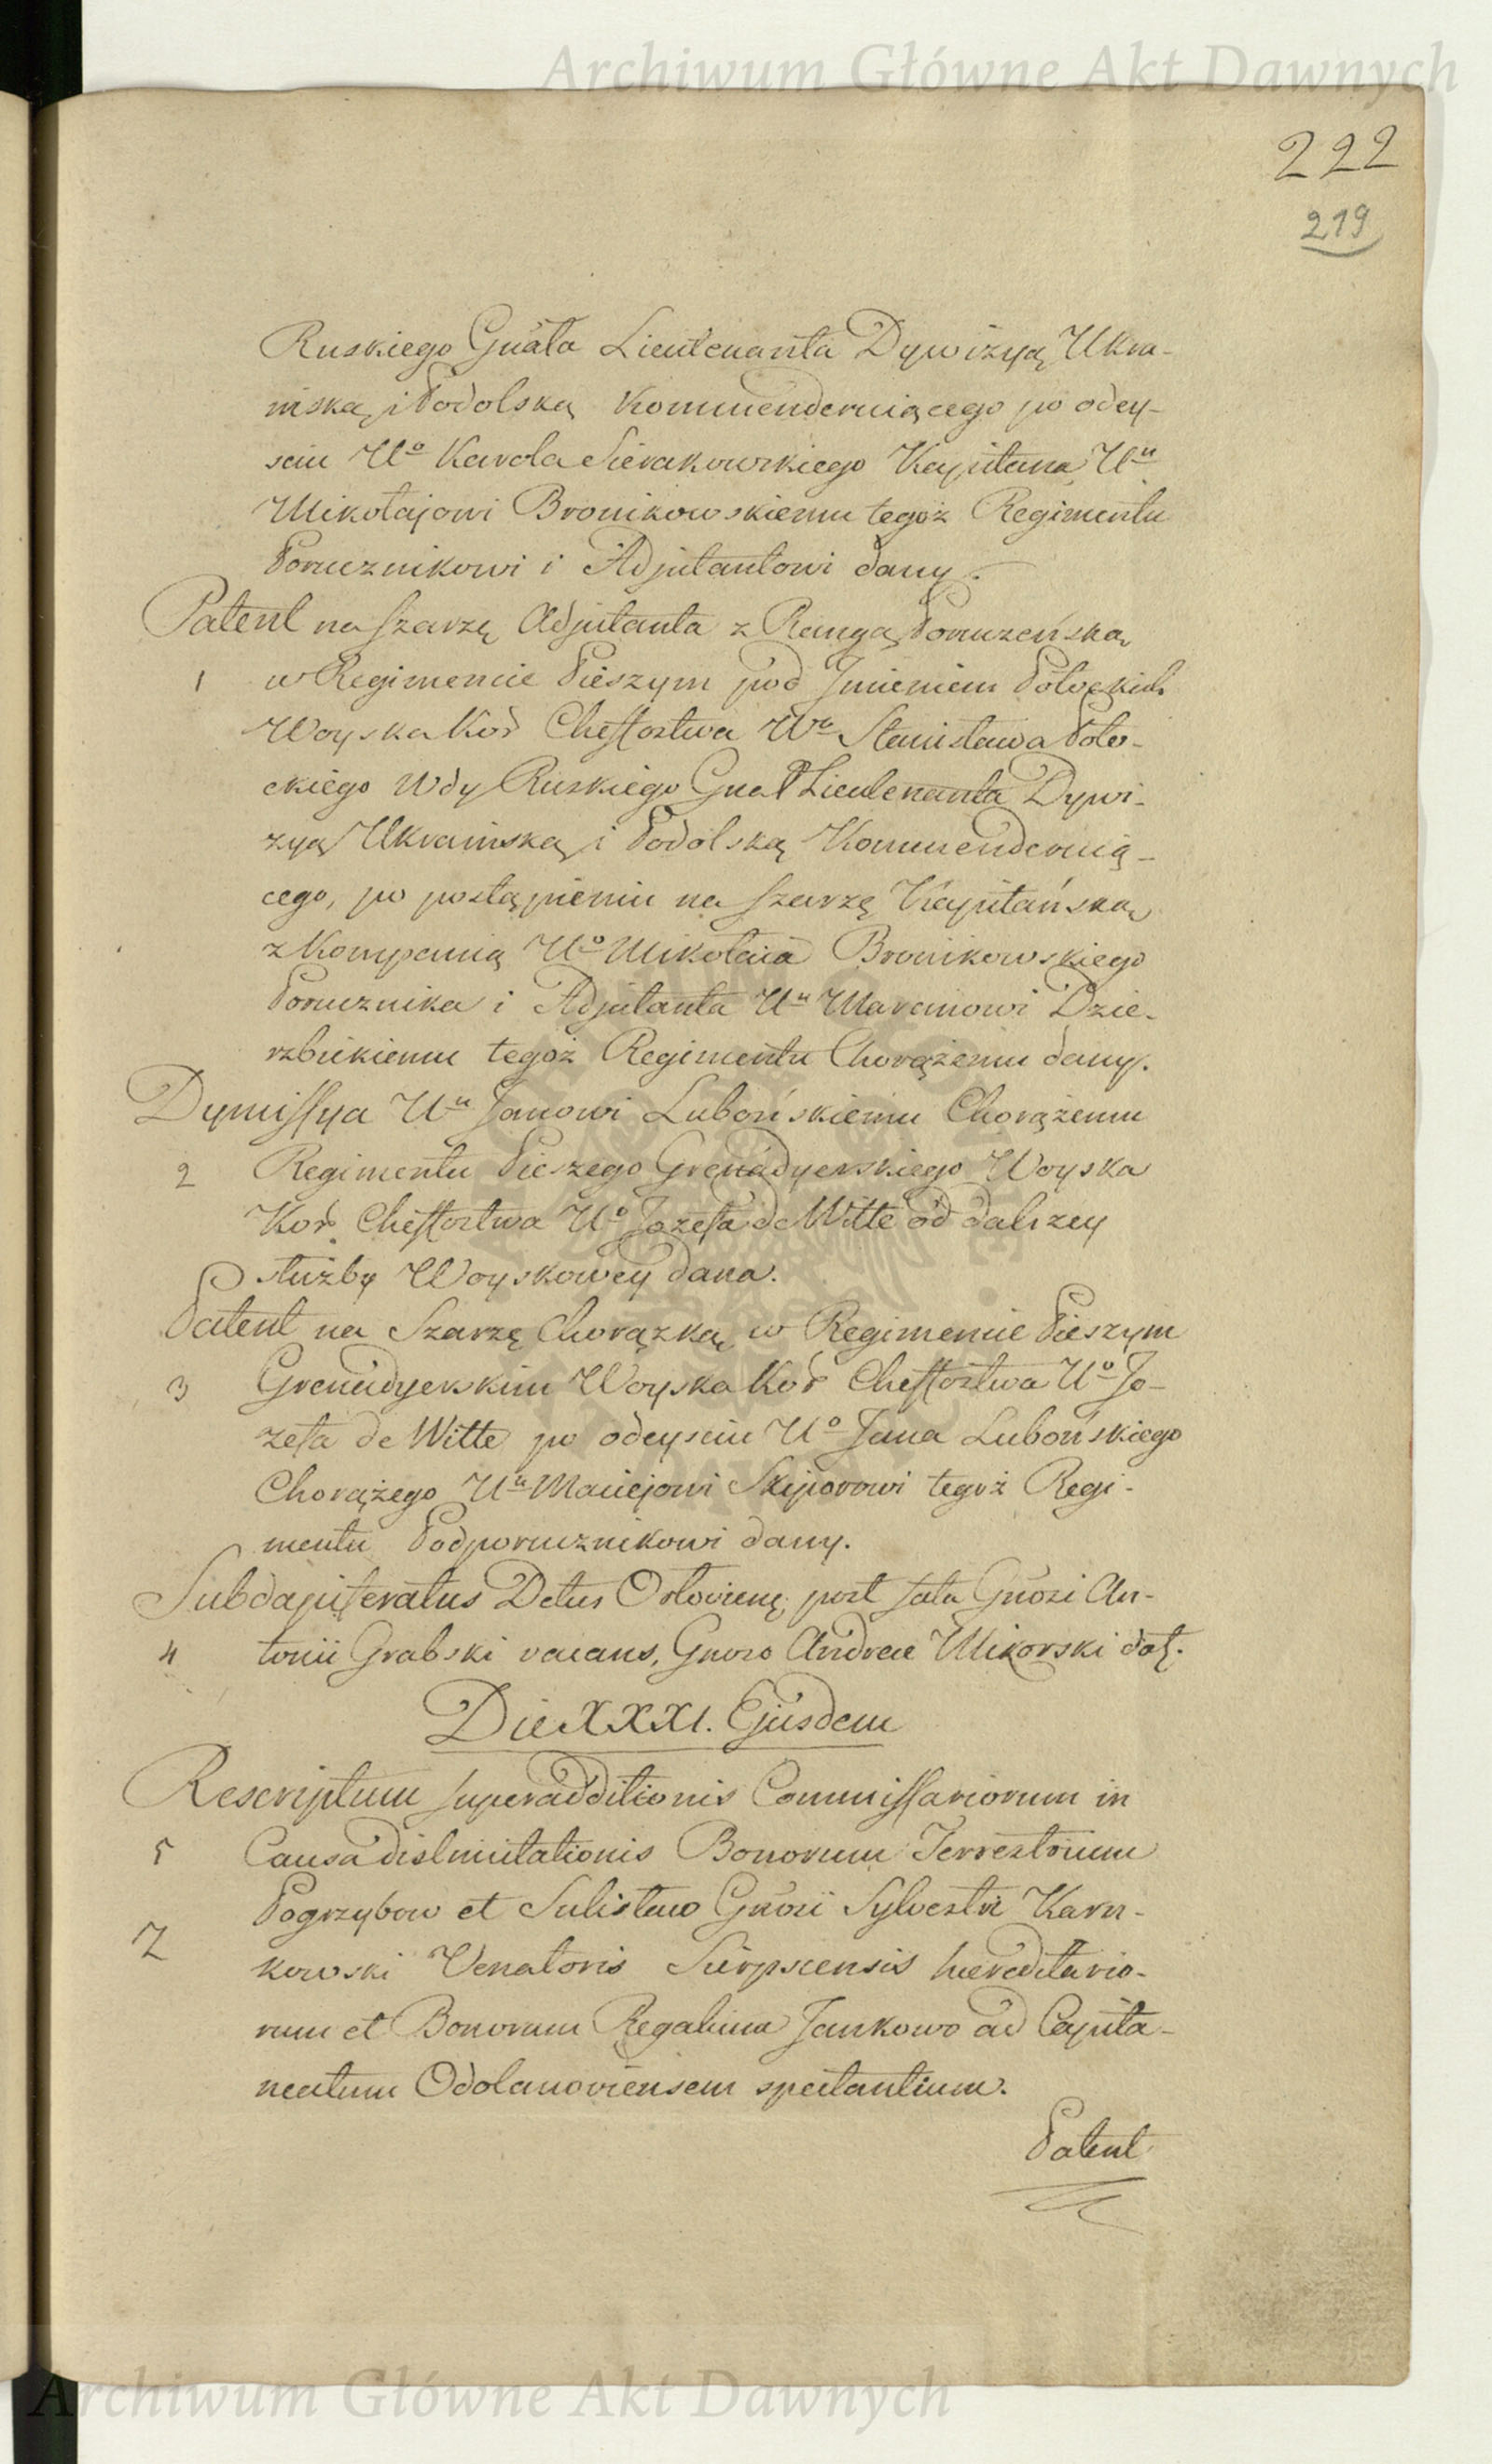 Archiwum Główne Akt Dawnych
222
219
Ruskiego Gnała Lieutenanta Dywizyą Ukra-
ińską i Podolską Kommenderuiącego po odey-
sciu Uo Karola Sierakowskiego Kapitana, Uu
Mikołajowi Bronikowskiemu tegoż Regimentu
Porucznikowi i Adjutantowi dany.
Patent na szarżę Adjutanta z Rangą Poruczeńską
1 w Regimencie Pieszym pod Jmieniem Potockich
Woyska Kor Cheffostwa Wo Stanisława Poto-
ckiego Wdy Ruskiego Gnał Lieutenanta Dywi-
zyą Ukraińską i Podolską Kommenderuią-
cego, po postąpieniu na szarżę Kapitańską
z Kompanią Uo Mikołaia Bronikowskiego
Porucznika i Adjutanta Uu Marcinowi Dzie-
rzbickiemu tegoż Regimentu Chorążemu dany.
Dymissya Uu Janowi Lubońskiemu Chorążemu
2 Regimentu Pieszego Grenadyerskiego Woyska
Kor. Cheffostwa Uo Jozefa de Witte od dalszey
służby Woyskowey dana.
Patent na Szarżę Chorążką w Regimencie Pieszym
3 Grenadyerskim Woyska Kor Cheffostwa Uo Jo-
zefa de Witte po odeysciu Uo Jana Lubońskiego
Chorążego Uu Maciejowi Skiporowi tegoż Regi-
mentu Podporucznikowi dany.
Subdapiferatus Dctus Orłovien post fata Gnosi An-
4 tonii Grabski vacans, Gnoso Andreae Mikorski dat.
Die XXXI. Ejusdem
Rescriptum superadditionis Commissariorum in
5 Causa dislimitationis Bonorum Terrestrium
Pogrzybow et Sulisław Gnosi Sylvestri Karn-
Z
kowski Venatoris Sierpscensis haereditario-
rum et Bonorum Regalium Jankowo ad Capita-
neatum Odolanoviensem spectantium.
Patent
Archiwum Główne Akt Dawnych